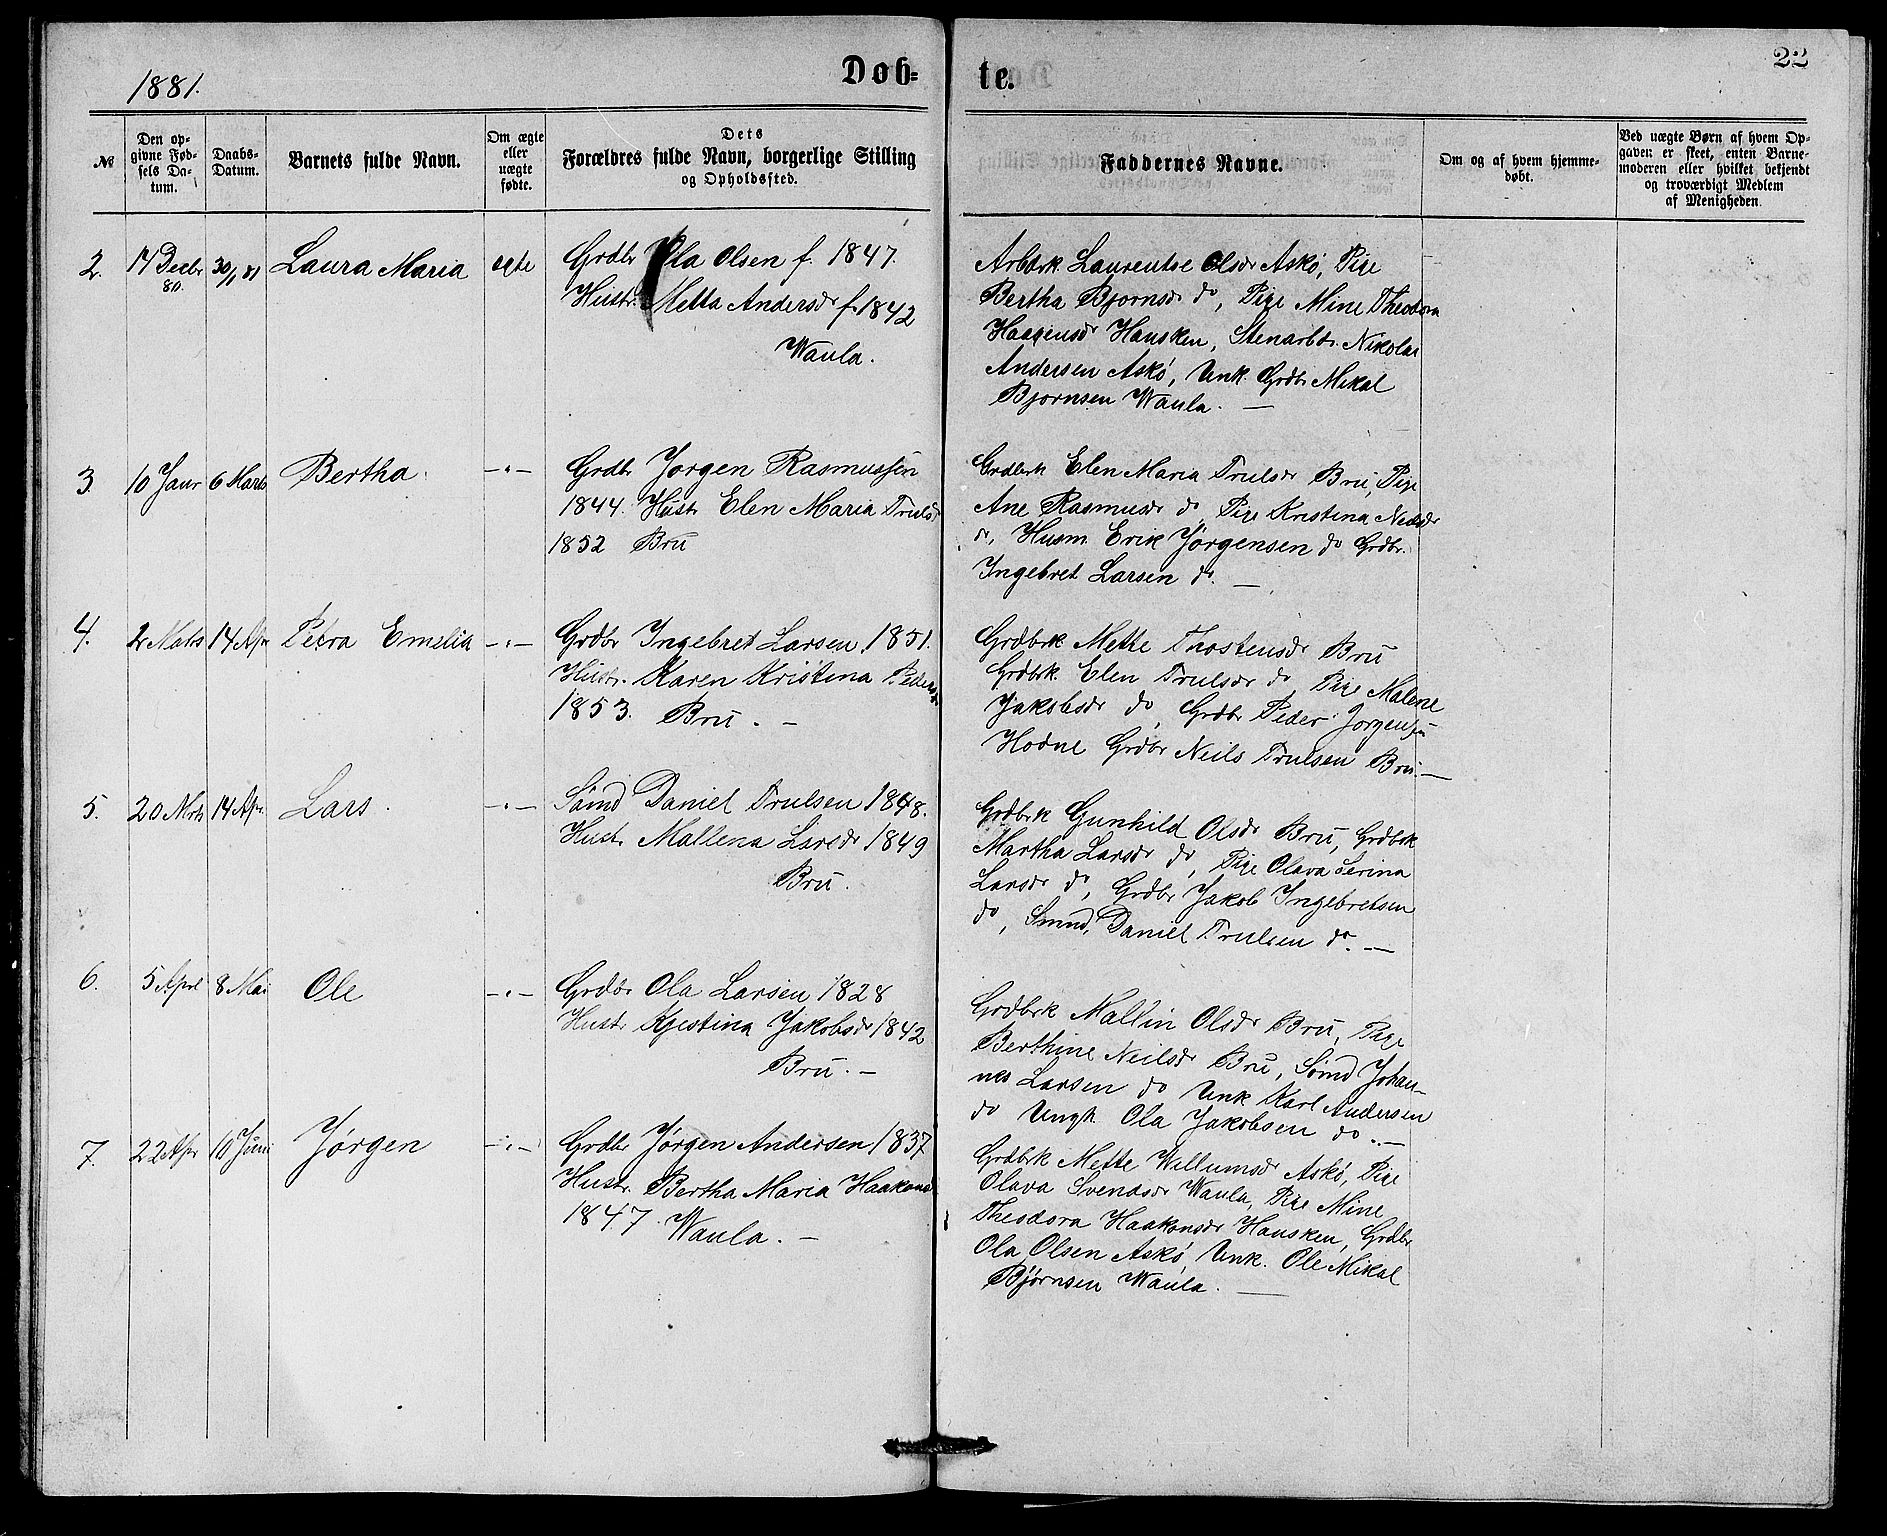 1881.
Døb-
te.
22
№
Den op-
givne Fød-
sels Da-
tum.
Daabs-
Datum.
Barnets fulde Navn.
Om ægte
eller
uægte
fødte.
Dets
Forældres fulde Navn, borgerlige Stilling
og Opholdssted.
Faddernes Navne.
Om og af hvem hjemme-
døbt.
Ved uægte Børn af hvem Op-
gaven er skeet, enten Barne-
moderen eller hvilket bekjendt
og troværdigt Medlem
af Menigheden.
2. 14 Decbr 80. 30/1 81 Laura Maria egte
Grdbr Ola Olsen f. 1847.
Hustr. Metta Andersdr f. 1842
Waula.
Arbdrk. Laurentse Olsdr Askö, Pige
Bertha Bjornsdr do, Pige Mine Theodora
Haagensdr Hausken, Stenarbdr. Nikolai
Andersen Askö, Unk. Grdbr Mikal
Bjornsen Waula. —
3. 10 Janr 6 Marts Bertha. —"—
Grdbr Jorgen Rasmussen
1844. Hustr Elen Maria Trulsdr
1852 Bru
Grdbrk Elen Maria Trulsdr Bru, Pige
Ane Rasmusdr do Pige Kristina Neilsdr
do, Husm. Erik Jørgensen do Grdbr.
Ingebret Larsen do. —
4. 2 Marts 14 Apr Petra Emelia —"—
Grdbr Ingebret Larsen 1851.
Hustr. Karen Kristina Pedersdr
1853. Bru. —
Grdbrk. Mette Thostensdr Bru
Grdbrk. Elen Trulsdr do, Pige Malene
Jakobsdr do, Grdbr Peder Jorgensen
Hodne Grdbr Neils Trulsen Bru. —
5. 20 Mrts 14 Apr. Lars. —"—
Sömd Daniel Trulsen 1848.
Hustr. Mallena Larsdr 1849
Bru.
Grdbrk Gunhild Olsdr Bru, Grdbrk
Martha Larsdr do, Pige Olava Serina
Larsdr do, Grdbr Jakob Ingebretsen
do, Smnd, Daniel Trulsen do. —
6. 5 Aprl 8 Mai Ole —"—
Grdbr Ola Larsen 1828
Hustr. Kjestina Jakobsdr 1842
Bru. —
Grdbrk Mallin Olsdr Bru, Pige
Berthine Neilsdr Bru, Sömd Johan-
nes Larsen do Unk Karl Andersen
do Ungk. Ola Jakobsen do. —
7. 22 Apr 10 Juni Jørgen —"—
Grdbr Jørgen Andersen 1837
Hustr. Bertha Maria Haakons
1847. Waula. —
Grdbrk Mette Willumsdr Askö, Pige
Olava Svendsdr Waula, Pige Mine
Theodora Haakonsdr Hausken, Grdbr
Ola Olsen Askö, Unk. Ole Mikal
Bjørnsen Waula. —